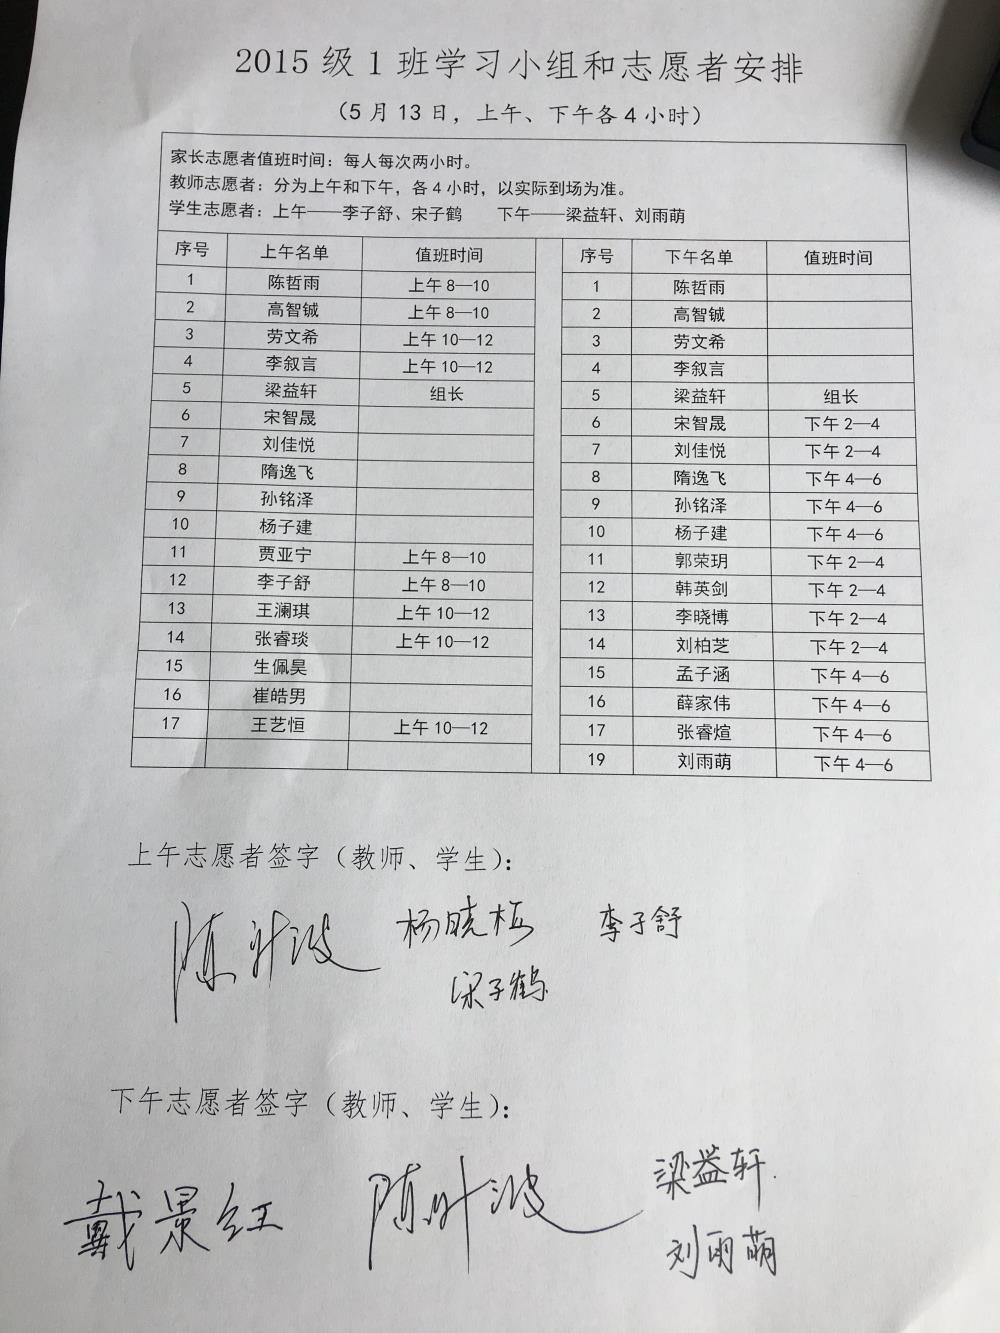 2015 级 1 班学习小组和志愿者安排
（5 月 13 日，上午、下午各 4 小时）
家长志愿者值班时间：每人每次两小时。
教师志愿者：分为上午和下午，各 4 小时，以实际到场为准。
学生志愿者：上午——李子舒、宋子鹤 下午——梁益轩、刘雨萌
序号 上午名单 值班时间 序号 下午名单 值班时间
1 陈哲雨 上午 8—10 1 陈哲雨
2 高智铖 上午 8—10 2 高智铖
3 劳文希 上午 10—12 3 劳文希
4 李叙言 上午 10—12 4 李叙言
5 梁益轩 组长 5 梁益轩 组长
6 宋智晟 6 宋智晟 下午 2—4
7 刘佳悦 7 刘佳悦 下午 2—4
8 隋逸飞 8 隋逸飞 下午 4—6
9 孙铭泽 9 孙铭泽 下午 4—6
10 杨子建 10 杨子建 下午 4—6
11 贾亚宁 上午 8—10 11 郭荣玥 下午 2—4
12 李子舒 上午 8—10 12 韩英剑 下午 2—4
13 王澜琪 上午 10—12 13 李晓博 下午 2—4
14 张睿琰 上午 10—12 14 刘柏芝 下午 2—4
15 生佩昊 15 孟子涵 下午 4—6
16 崔皓男 16 薛家伟 下午 4—6
17 王艺恒 上午 10—12 17 张睿煊 下午 4—6
19 刘雨萌 下午 4—6
上午志愿者签字（教师、学生）：
杨晓梅 李子舒
宋子鹤
下午志愿者签字（教师、学生）：
戴景红 梁益轩
刘雨萌